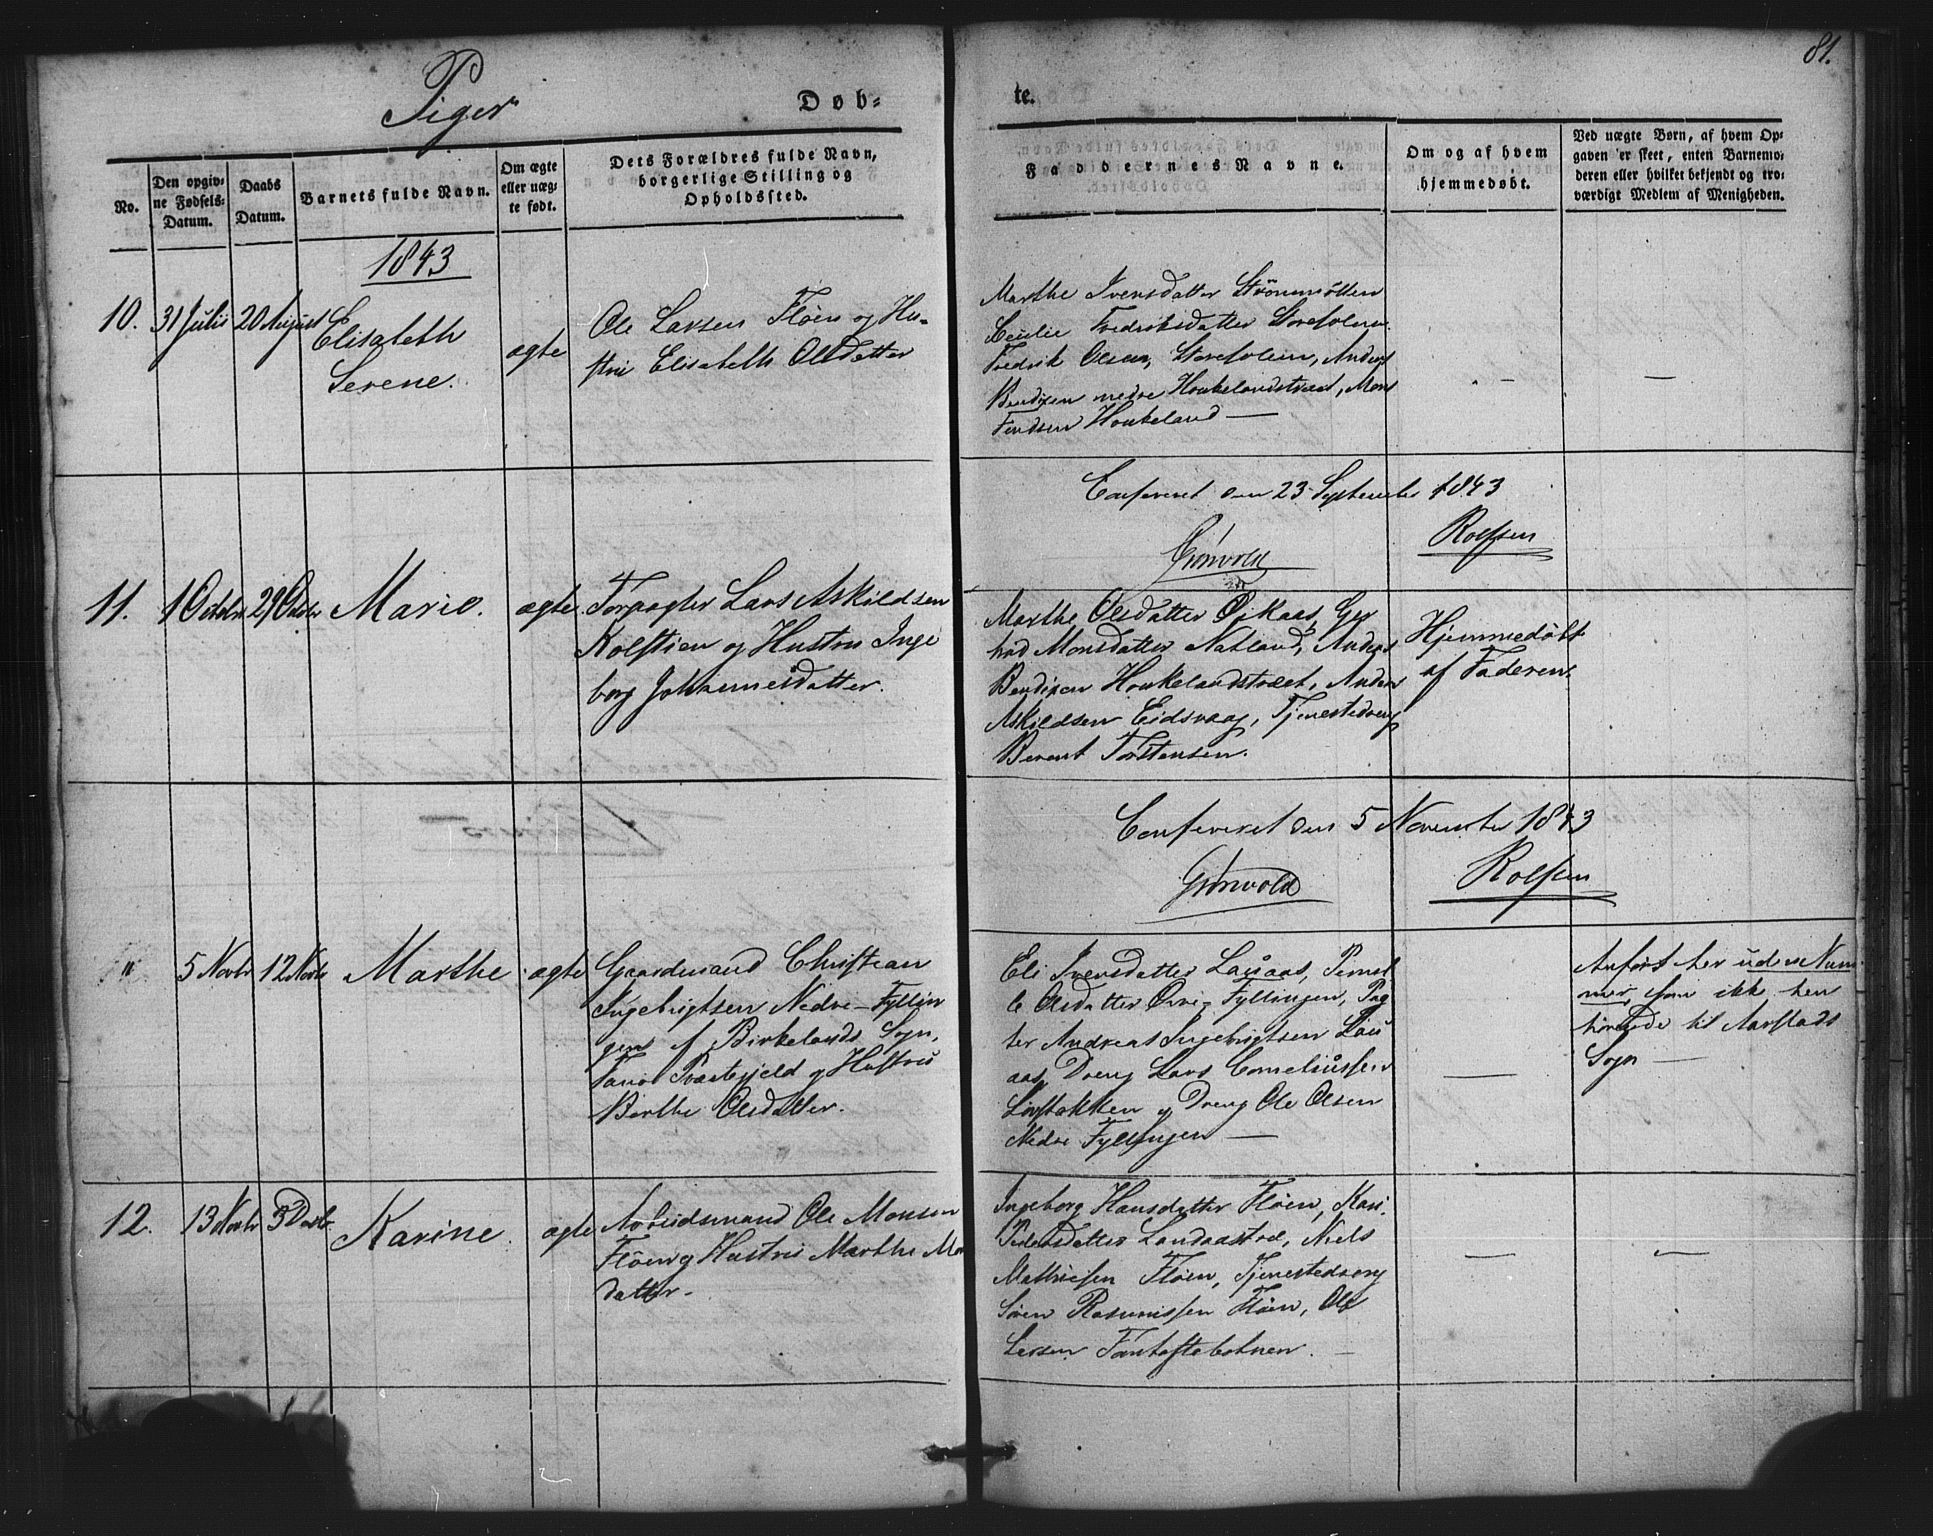 81.
Piger
Døb-
te.
No.
Den opgiv-
ne Fødsels-
Datum.
Daabs
Datum.
Barnets fulde Navn.
Om ægte
eller uæg-
te født.
Dets Forældres fulde Navn,
borgerlige Stilling og
Opholdssted.
Faddernes Navne.
Om og af hvem
hjemmedøbt.
Ved uægte Børn, af hvem Op-
gaven er skeet, enten Barnemo-
deren eller hvilket bekjendt og tro-
værdigt Medlem af Menigheden.
1843
10.
31 Julii
20 August
Elisabeth
Serene.
ægte
Ole Larsen Fløen og Hu-
stru Elisabeth Olsdatter
Marthe Iversdatter
Fredriksdatter
Fredrik Olsen, Anders
Bendixen nedre Houkelandstræet, Mons
Houkeland —
Confereret den 23 September 1843
Grönvold
Rolfsen
11.
1 Octbr
29 Octbr
Marie.
ægte
Lars Askildsen
og Hustru Inge
borg Johannesdatter.
Marthe Olsdatter Ger
trud Monsdatter Natland, Anders
Bendixen Houkelandstræet, Anders
Askildsen Eidsvaag, Tjenestedreng
Berent Torstensen.
Hjemmedøbt
af Faderen
Confereret den 5 November 1843
Grönvold
Rolfsen
"
5 Novbr
12 Novbr
Marthe
ægte
Gaardmand Christian
Ingebrigtsen Nedre-Fyllin
gen af Birkelands Sogn,
Fanø Præstegjeld og Hustru
Berthe Olsdatter.
Eli Iversdatter
Olsdatter Øvre-Fyllingen,
ter Andreas Ingebrigtsen
Dreng Lars Corneliussen
og Dreng Ole Olsen
Nedre Fyllingen —
Anført her uden Num
mer, som ikke hen
hørende til Aarstads
Sogn —
12.
13 Novbr
3 Decbr
Karine.
ægte
Arbeidsmand Ole Monsen
Fløen og Hustru Marthe
datter.
Ingeborg Hansdatter Fløen, Kari
Pedersdatter Landaastræ, Niels
Mathiesen Fløen, Tjenestedreng
Sören Rasmussen Fløen, Ole
Larsen Fantoftebotnen.